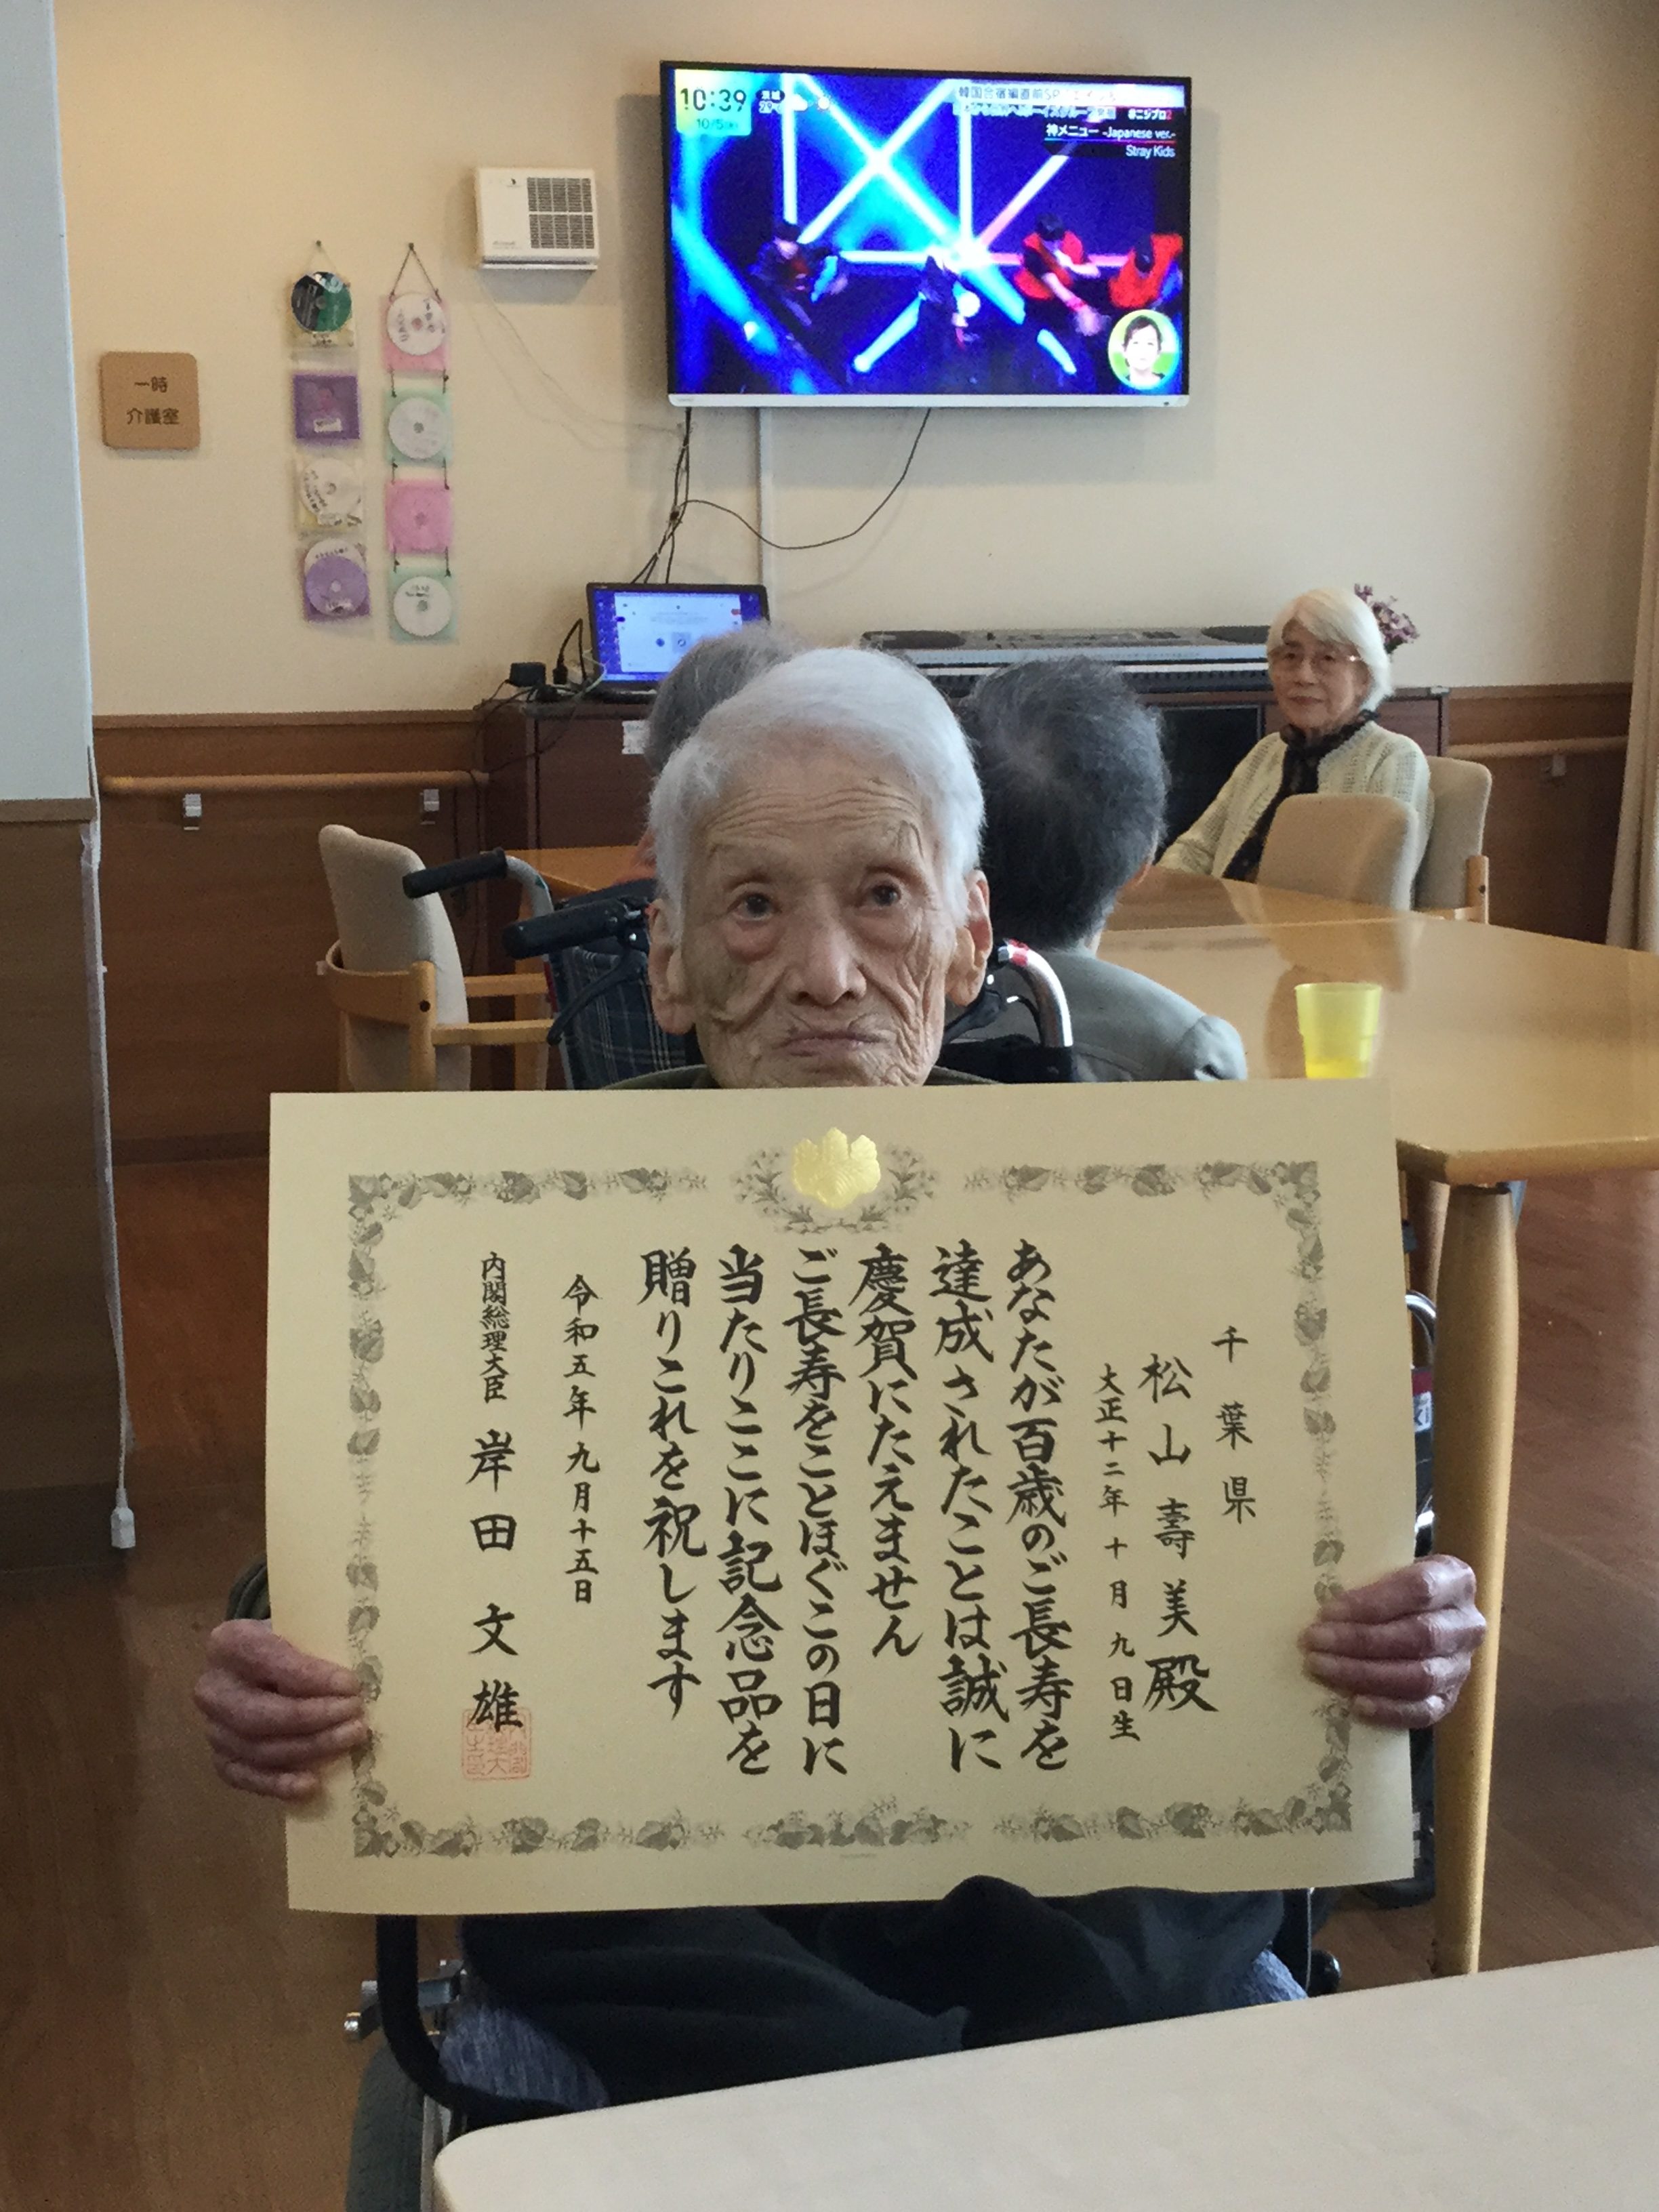 10:39
10/5
茨城
29
神メニュー -Japanese ver.-
Stray Kids
一時
介護室
千葉県
松山壽美殿
大正十二年十月九日生
あなたが百歳のご長寿を
達成されたことは誠に
慶賀にたえません
ご長寿をことほぐこの日に
当たりここに記念品を
贈りこれを祝します
令和五年九月十五日
内閣総理大臣 岸田文雄